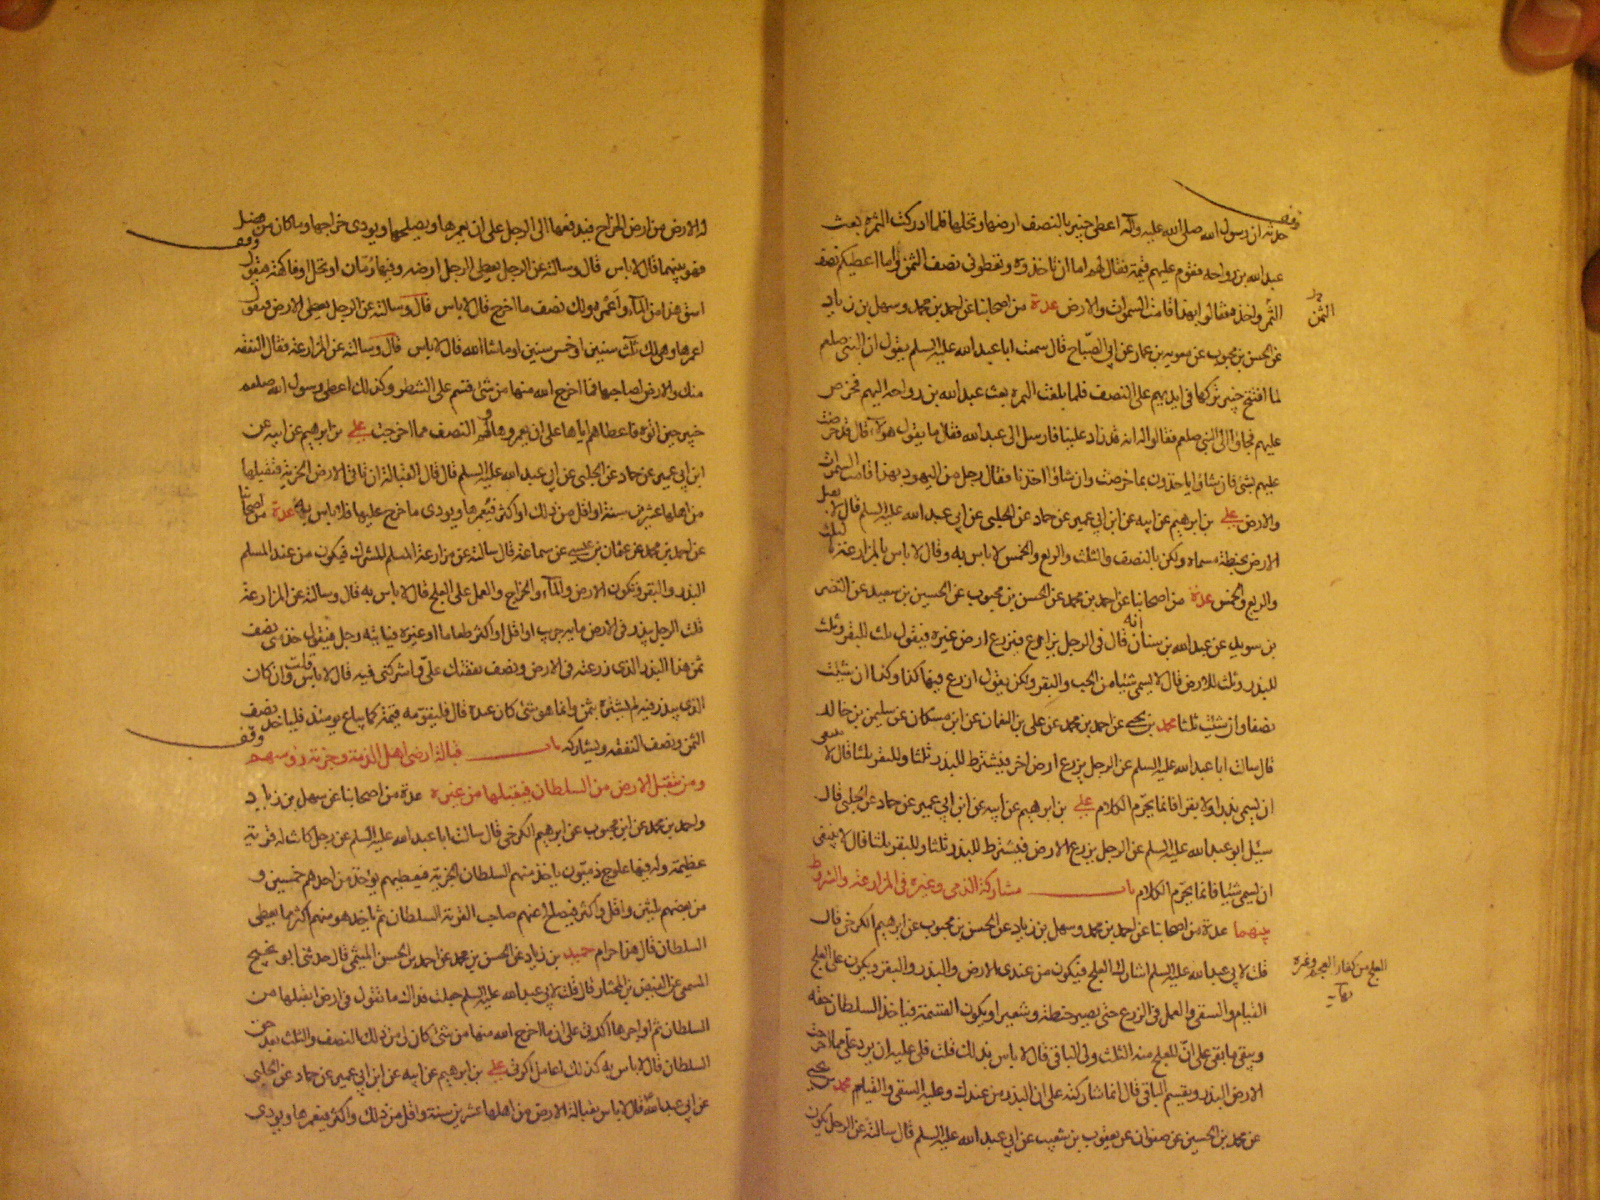 حدثه ان رسول الله صلى الله عليه وآله اعطى خيبر بالنصف ارضها ونخلها فلما ادركت الثمرة بعث
عبد الله بن رواحه فقوم عليهم قيمة فقال لهم اما ان تاخذوه وتعطوني نصف الثمن واما اعطيكم نصف
الثمن واخذه فقالوا بهذا قامت السموات والارض عدة من اصحابنا عن احمد بن محمد وسهل بن زياد
عن الحسن بن محبوب عن معوية بن عمار عن ابي الصباح قال سمعت ابا عبد الله عليه السلم يقول ان النبي صلعم
لما افتتح خيبر تركها في ايديهم على النصف فلما بلغت الثمره بعث عبد الله بن رواحه اليهم فخرص
عليهم فجاؤا الى النبي صلعم فقالوا له انه قد زاد علينا فارسل الى عبد الله فقال ما يقول هؤلاء قال قد خرصت
عليهم بشئ فان شاؤا ياخذون بما خرصت وان شاؤا اخذنا فقال رجل من اليهود بهذا قامت السموات
والارض علي بن ابرهيم عن ابيه عن ابن ابي عمير عن حماد عن الحلبي عن ابي عبد الله عليه السلم قال لا تقبل
الارض بحنطة مسماه ولكن بالنصف والثلث والربع والخمس لا باس به وقال لا باس بالمزارعة بالثلث
والربع والخمس عدة من اصحابنا عن احمد بن محمد عن الحسن بن محبوب عن الحسين بن سعيد عن النضر
بن سويد عن عبد الله بن سنان انه قال في الرجل يزارع فيزرع ارض غيره فيقول ثلث للبقر وثلث
للبذر وثلث للارض قال لا يسمي شيئا من الحب والبقر ولكن يقول ازرع فيها كذا وكذا ان شئت
نصفا وان شئت ثلثا محمد بن يحيى عن احمد بن محمد عن علي بن النعمان عن ابن مسكان عن سليمن بن خالد
قال سالت ابا عبد الله عليه السلم عن الرجل يزرع ارض اخر فيشترط للبذر ثلثا وللبقر ثلثا قال لا ينبغي
ان يسمي بذرا ولا بقرا فانما يحرم الكلام علي بن ابرهيم عن ابيه عن ابن ابي عمير عن حماد عن الحلبي قال
سئل ابو عبد الله عليه السلم عن الرجل يزرع الارض فيشترط للبذر ثلثا وللبقر ثلثا قال لا ينبغي
ان يسمي شيئا فانما يحرم الكلام باب مشاركة الذمي وغيره في المزارعة والشروط
بينهما عدة من اصحابنا عن احمد بن محمد وسهل بن زياد عن الحسن بن محبوب عن ابرهيم الكرخي قال
قلت لابي عبد الله عليه السلم اشارك العلج فيكون من عندي الارض والبذر والبقر ويكون على العلج
القيام والسقي والعمل في الزرع حتى يصير حنطة وشعيرا ويكون القسمة فياخذ السلطان حقه
ويبقى ما بقي على ان للعلج منه الثلث ولي الباقي قال لا باس بذلك قلت فلي عليه ان يرد علي مما اخرجت
الارض البذر ويقسم الباقي قال انما شاركته على ان البذر من عندك وعليه السقي والقيام محمد بن يحيى
عن محمد بن الحسين عن صفوان عن يعقوب بن شعيب عن ابي عبد الله عليه السلم قال سالته عن الرجل يكون
وقف
الثمن
العلج من كفار العجم وغيره
نهاية
له الارض من ارض الخراج فيدفعها الى الرجل على ان يعمرها ويصلحها ويودى خراجها وما كان من فضل
فهو بينهما قال لا باس قال وسالته عن الرجل يعطى الرجل ارضه وفيها رمان او نخل او فاكهة فيقول
اسق هذا من الماء واعمره ولك نصف ما اخرج قال لا باس قال وسالته عن الرجل يعطى الارض فيقول
اعمرها وهي لك ثلث سنين او خمس سنين او ما شاء الله قال لا باس قال وسالته عن المزارعة فقال النفقه
منك والارض لصاحبها فما اخرج الله منها من شئ قسم على الشطر وكذلك اعطى رسول الله صلعم
خيبر حين اتوه فاعطاهم اياها على ان يعمروها ولهم النصف مما اخرجت علي بن ابرهيم عن ابيه عن
ابن ابي عمير عن حماد عن الحلبي عن ابي عبد الله عليه السلم قال قال القبالة ان تاتي الارض الخربة فتقبلها
من اهلها عشرين سنة او اقل من ذلك او اكثر فيعمرها ويودى ما خرج عليها فلا باس به عدة من اصحابنا
عن احمد بن محمد عن عثمان بن عيسى عن سماعة قال سالته عن مزارعة المسلم المشرك فيكون من عند المسلم
البذر والبقر وتكون الارض والماء والخراج والعمل على العلج قال لا باس به قال وسالته عن المزارعة
قلت الرجل يبذر في الارض مائه جريب او اقل او اكثر طعاما او غيره فياتيه رجل فيقول خذ مني نصف
ثمن هذا البذر الذي زرعته في الارض ونصف نفقتك علي واشركني فيه قال لا باس قلت وان كان
الذي يبذر فيه لم يشتره بثمن وانما هو شئ كان عنده قال فليقومه قيمة كما يباع يومئذ فلياخذ نصف
الثمن ونصف النفقه ويشاركه باب قبالة ارضي اهل الذمة وجزية رؤسهم
ومن يتقبل الارض من السلطان فيقبلها من غيره عدة من اصحابنا عن سهل بن زياد
واحمد بن محمد عن ابن محبوب عن ابرهيم الكرخي قال سالت ابا عبد الله عليه السلم عن رجل كانت له قرية
عظيمة وله فيها علوج ذميون ياخذ منهم السلطان الجزية فيعطيهم يؤخذ من احدهم خمسين و
من بعضهم ثلثين واقل واكثر فيصالح عنهم صاحب القرية السلطان ثم ياخذ هو منهم اكثر مما يعطى
السلطان قال هذا حرام حميد بن زياد عن الحسن بن محمد عن احمد بن الحسن الميثمي قال حدثني ابو نجيح
المسمعي عن الفيض بن المختار قال قلت لابي عبد الله عليه السلم جعلت فداك ما تقول في ارض اتقبلها من
السلطان ثم اواجرها اكرتي على ان ما اخرج الله منها من شئ كان لي من ذلك النصف والثلث بعد حق
السلطان قال لا باس به كذلك اعامل اكرتي علي بن ابرهيم عن ابيه عن ابن ابي عمير عن حماد عن الحلبي
عن ابي عبد الله قال لا باس بقبالة الارض من اهلها عشرين سنة واقل من ذلك واكثر فيعمرها ويودى
وقف
وقف